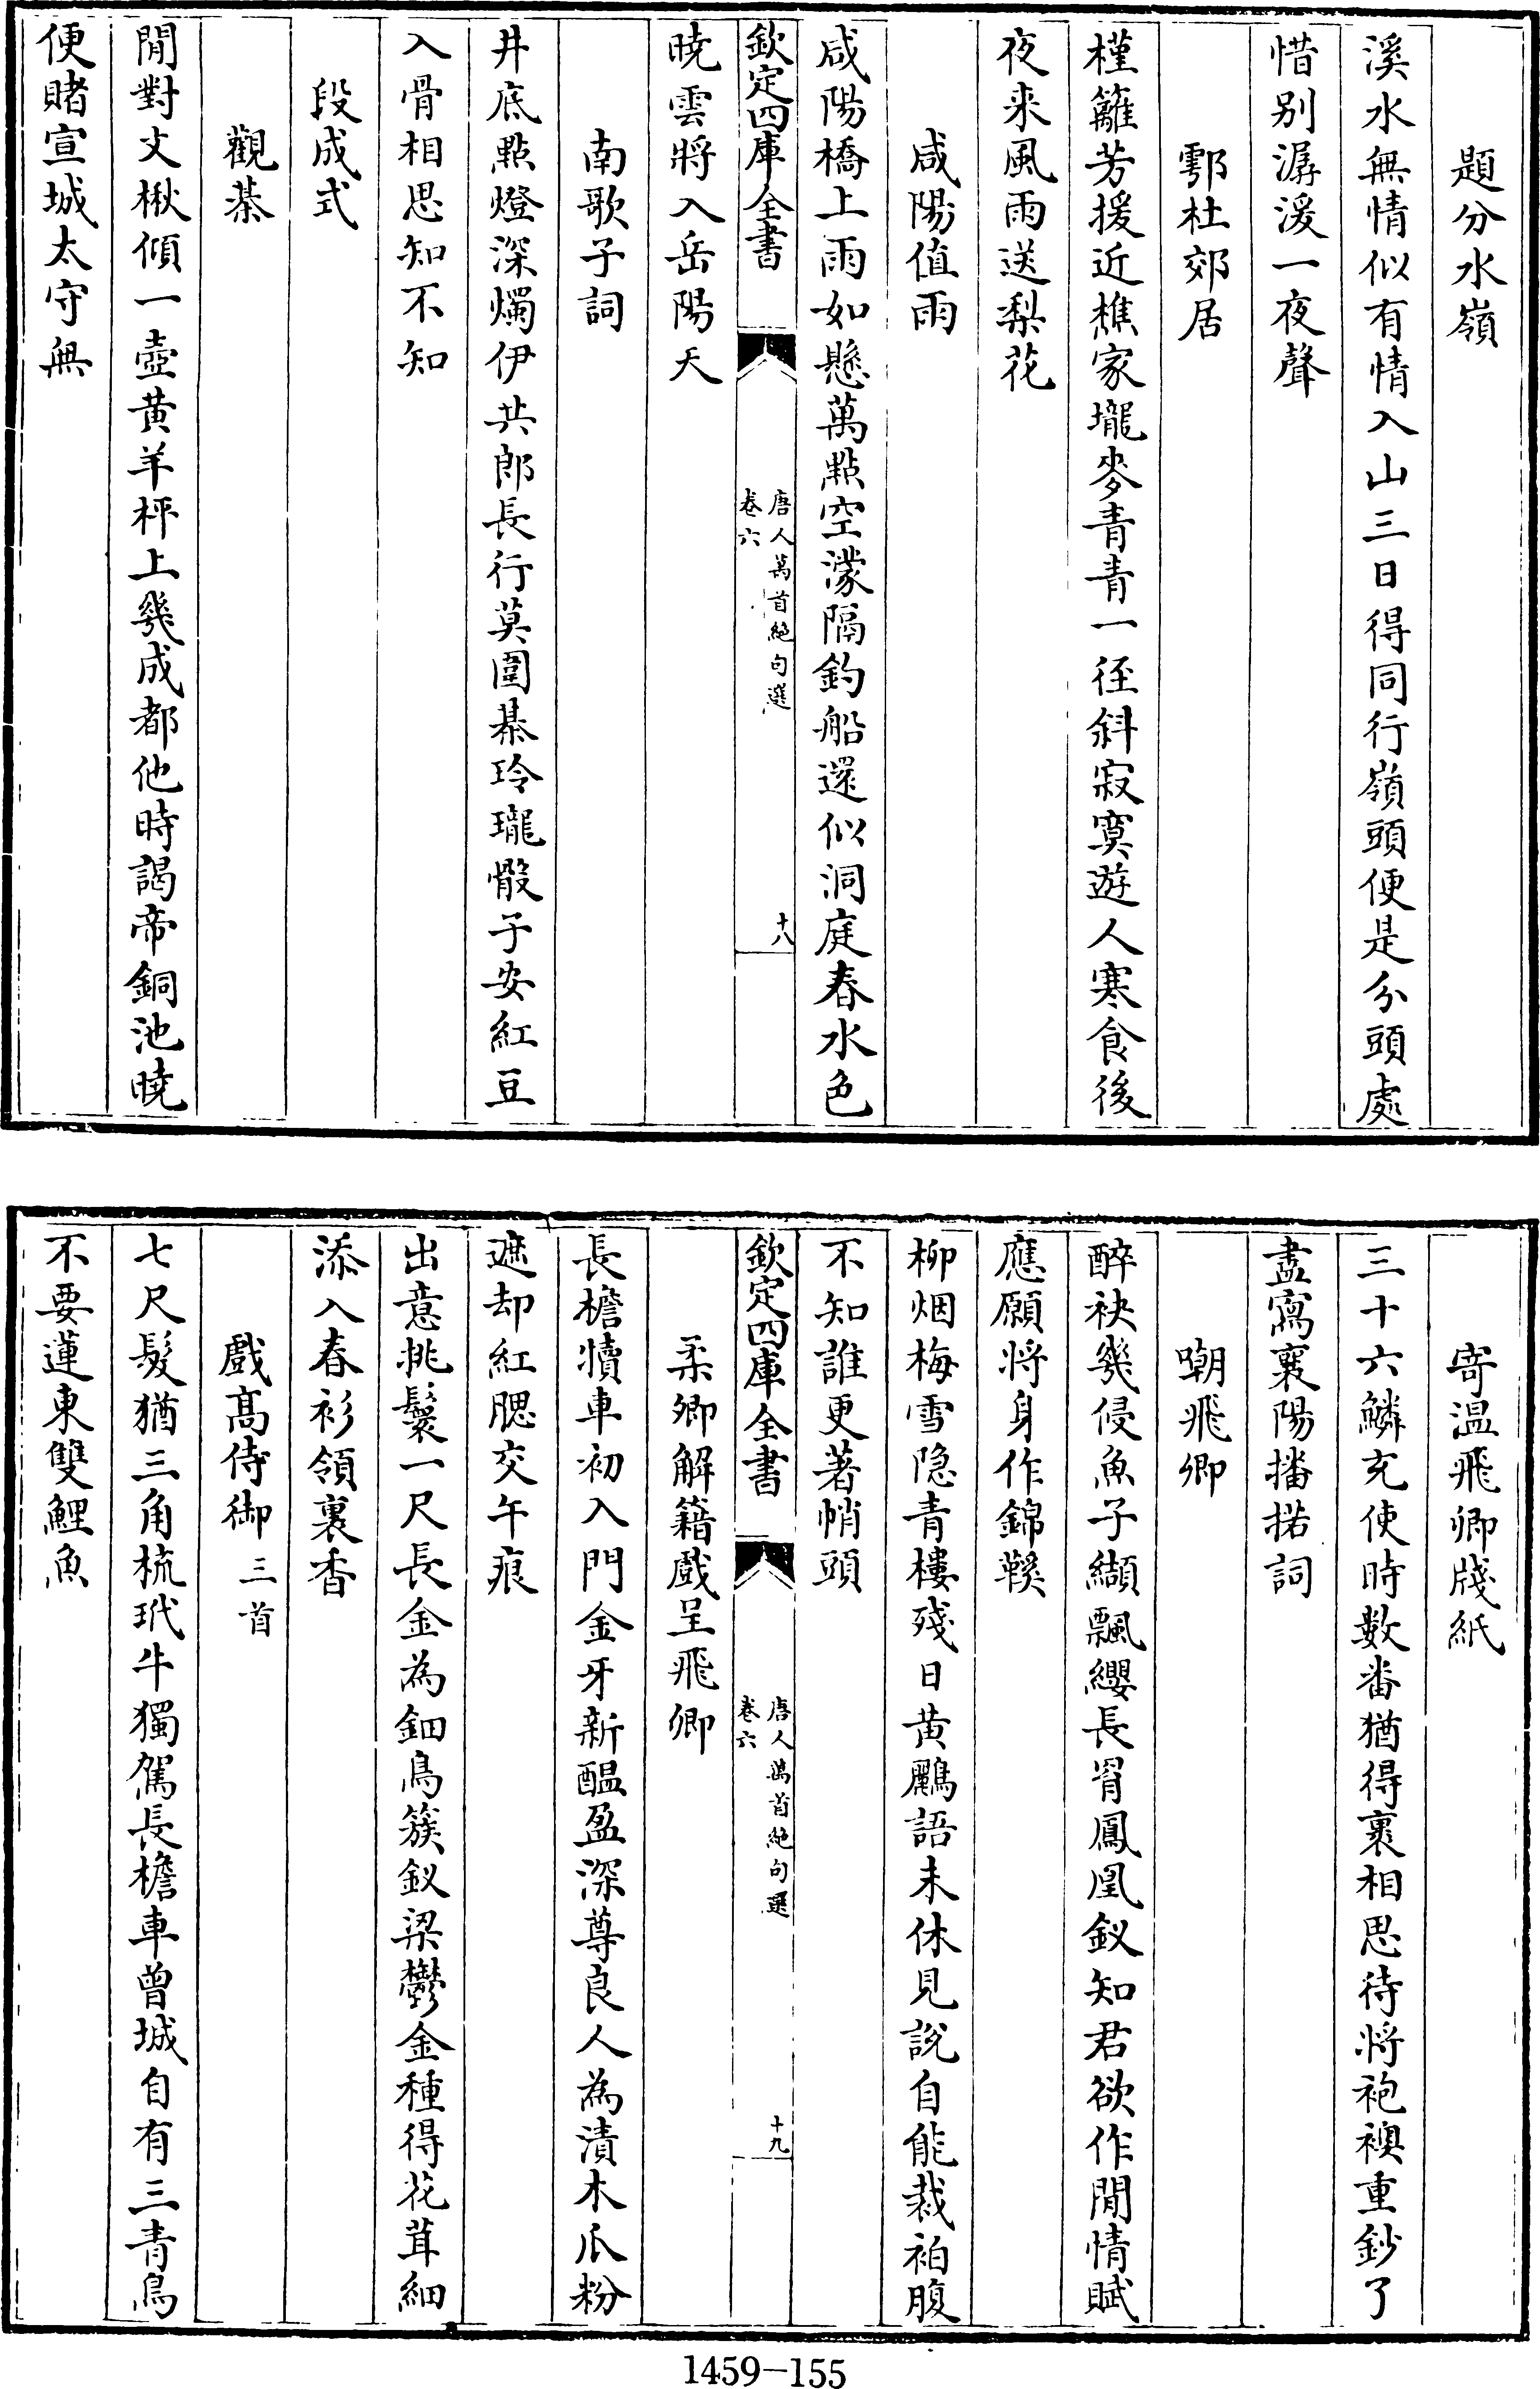 題分水嶺
溪水無情似有情入山三日得同行嶺頭便是分頭處
惜别潺湲一夜聲
鄠杜郊居
槿籬芳援近樵家壠麥青青一徑斜寂寞遊人寒食後
夜来風雨送梨花
咸陽值雨
咸陽橋上雨如懸萬點空濛隔釣船還似洞庭春水色
欽定四庫全書
唐人萬首絶句選
卷六
十八
曉雲將入岳陽天
南歌子詞
井底點燈深燭伊共郎長行莫圍棊玲瓏骰子安紅豆
入骨相思知不知
段成式
觀棊
閒對文楸傾一壺黄羊枰上幾成都他時謁帝銅池曉
便賭宣城太守無
寄温飛卿牋紙
三十六鱗充使時數番猶得裹相思待將袍襖重鈔了
盡寫襄陽播掿詞
嘲飛卿
醉袂幾侵魚子纈飄纓長罥鳳凰釵知君欲作閒情賦
應願將身作錦鞵
柳烟梅雪隐青樓殘日黄鸝語未休見說自能裁袙腹
不知誰更著帩頭
欽定四庫全書
唐人萬首絶句選
卷六
十九
柔卿解籍戲呈飛卿
長檐犢車初入門金牙新醖盈深尊良人為漬木瓜粉
遮却紅腮交午痕
出意挑鬟一尺長金為鈿鳥簇釵梁鬱金種得花茸細
添入春衫領裏香
戲髙侍御三首
七尺髮猶三角梳玳牛獨駕長檐車曾城自有三青鳥
不要蓮東雙鯉魚
1459-155